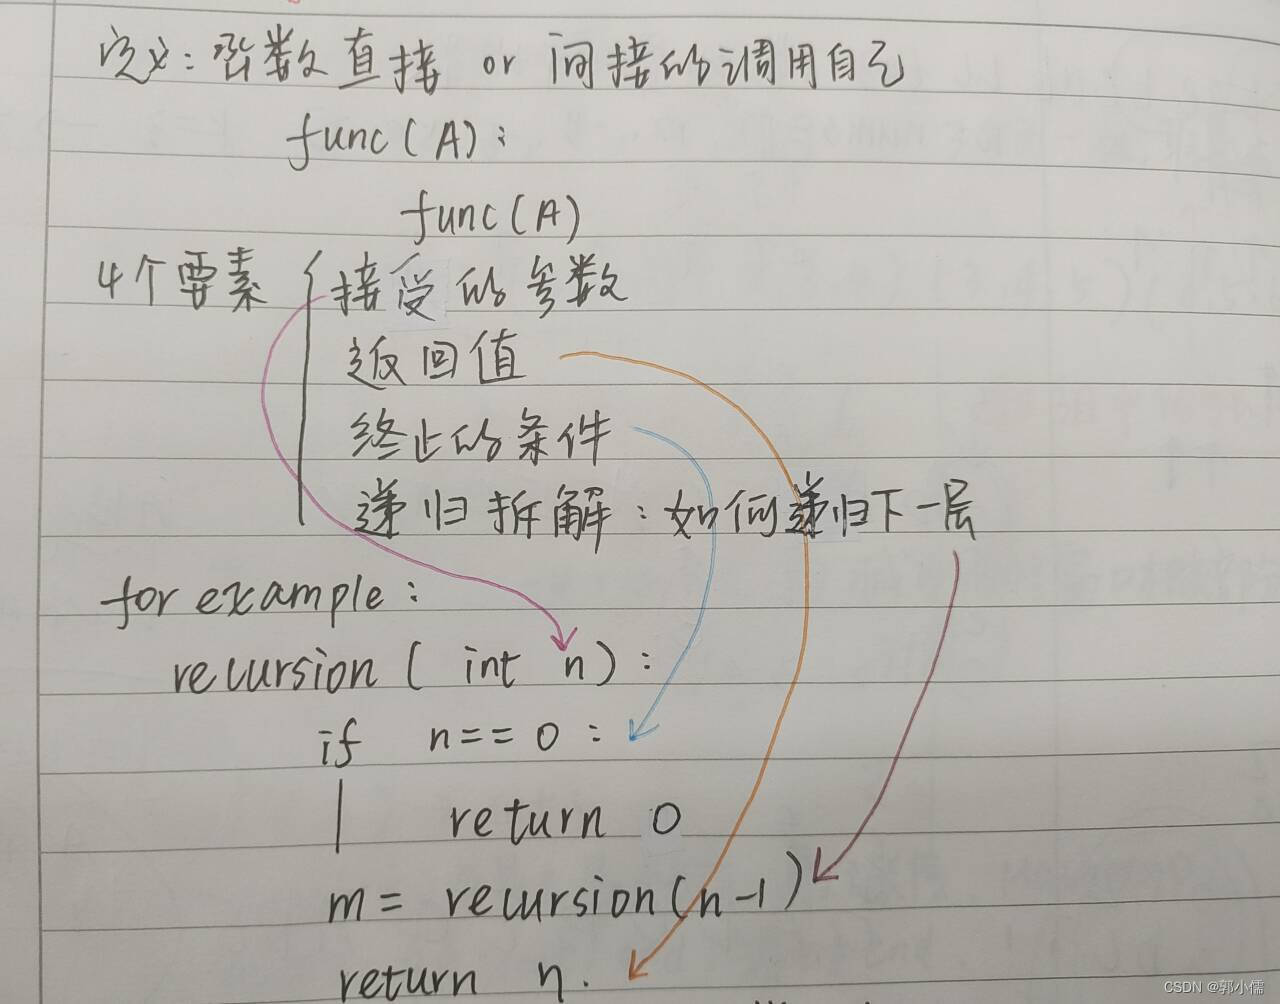 定义：函数直接 or 间接的调用自己
func(A):
func(A)
4个要素 { 接受的参数
返回值
终止的条件
递归拆解：如何递归下一层
for example:
recursion( int n):
if n==0:
return 0
m= recursion(n-1)
return n.
CSDN @郭小儒